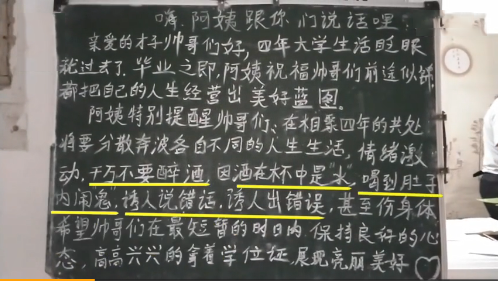 嗨,阿姨跟你们说话哩!
亲爱的才子帅哥们好,四年大学生活眨眼
就过去了.毕业之即,阿姨祝福帅哥们前途似锦
都把自己的人生经营出美好蓝图。
阿姨特别提醒帅哥们、在相聚四年的共处
将要分散奔波各自不同的人生生活,情绪激
动,千万不要醉酒,因酒在杯中是"水,喝到肚子
内闹鬼",诱人说错话,诱人出错误,甚至伤身体
希望帅哥们在最短暂的时日内保持良好的心
态,高高兴兴的拿着学位证.展现亮丽美好